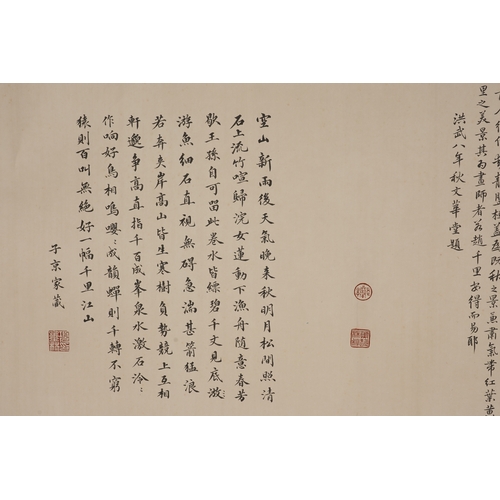 之景兼肅氣帶紅葉黃
里之美景其為畫師者若趙千里安得而易耶
洪武八年秋文華堂題
空山新雨後天氣晚来秋明月松間照清
石上流竹喧歸浣女蓮動下漁舟随意春芳
歇王孫自可留此卷水皆縹碧千丈見底游
游魚細石直視無碍急湍甚箭猛浪
若奔夾岸高山皆生寒樹負勢競上互相
軒邈争高直指千百成峯泉水激石泠:
作响好鳥相鳴嚶:成韻蟬則千轉不窮
猿則百叫無絶好一幅千里江山
子京家藏